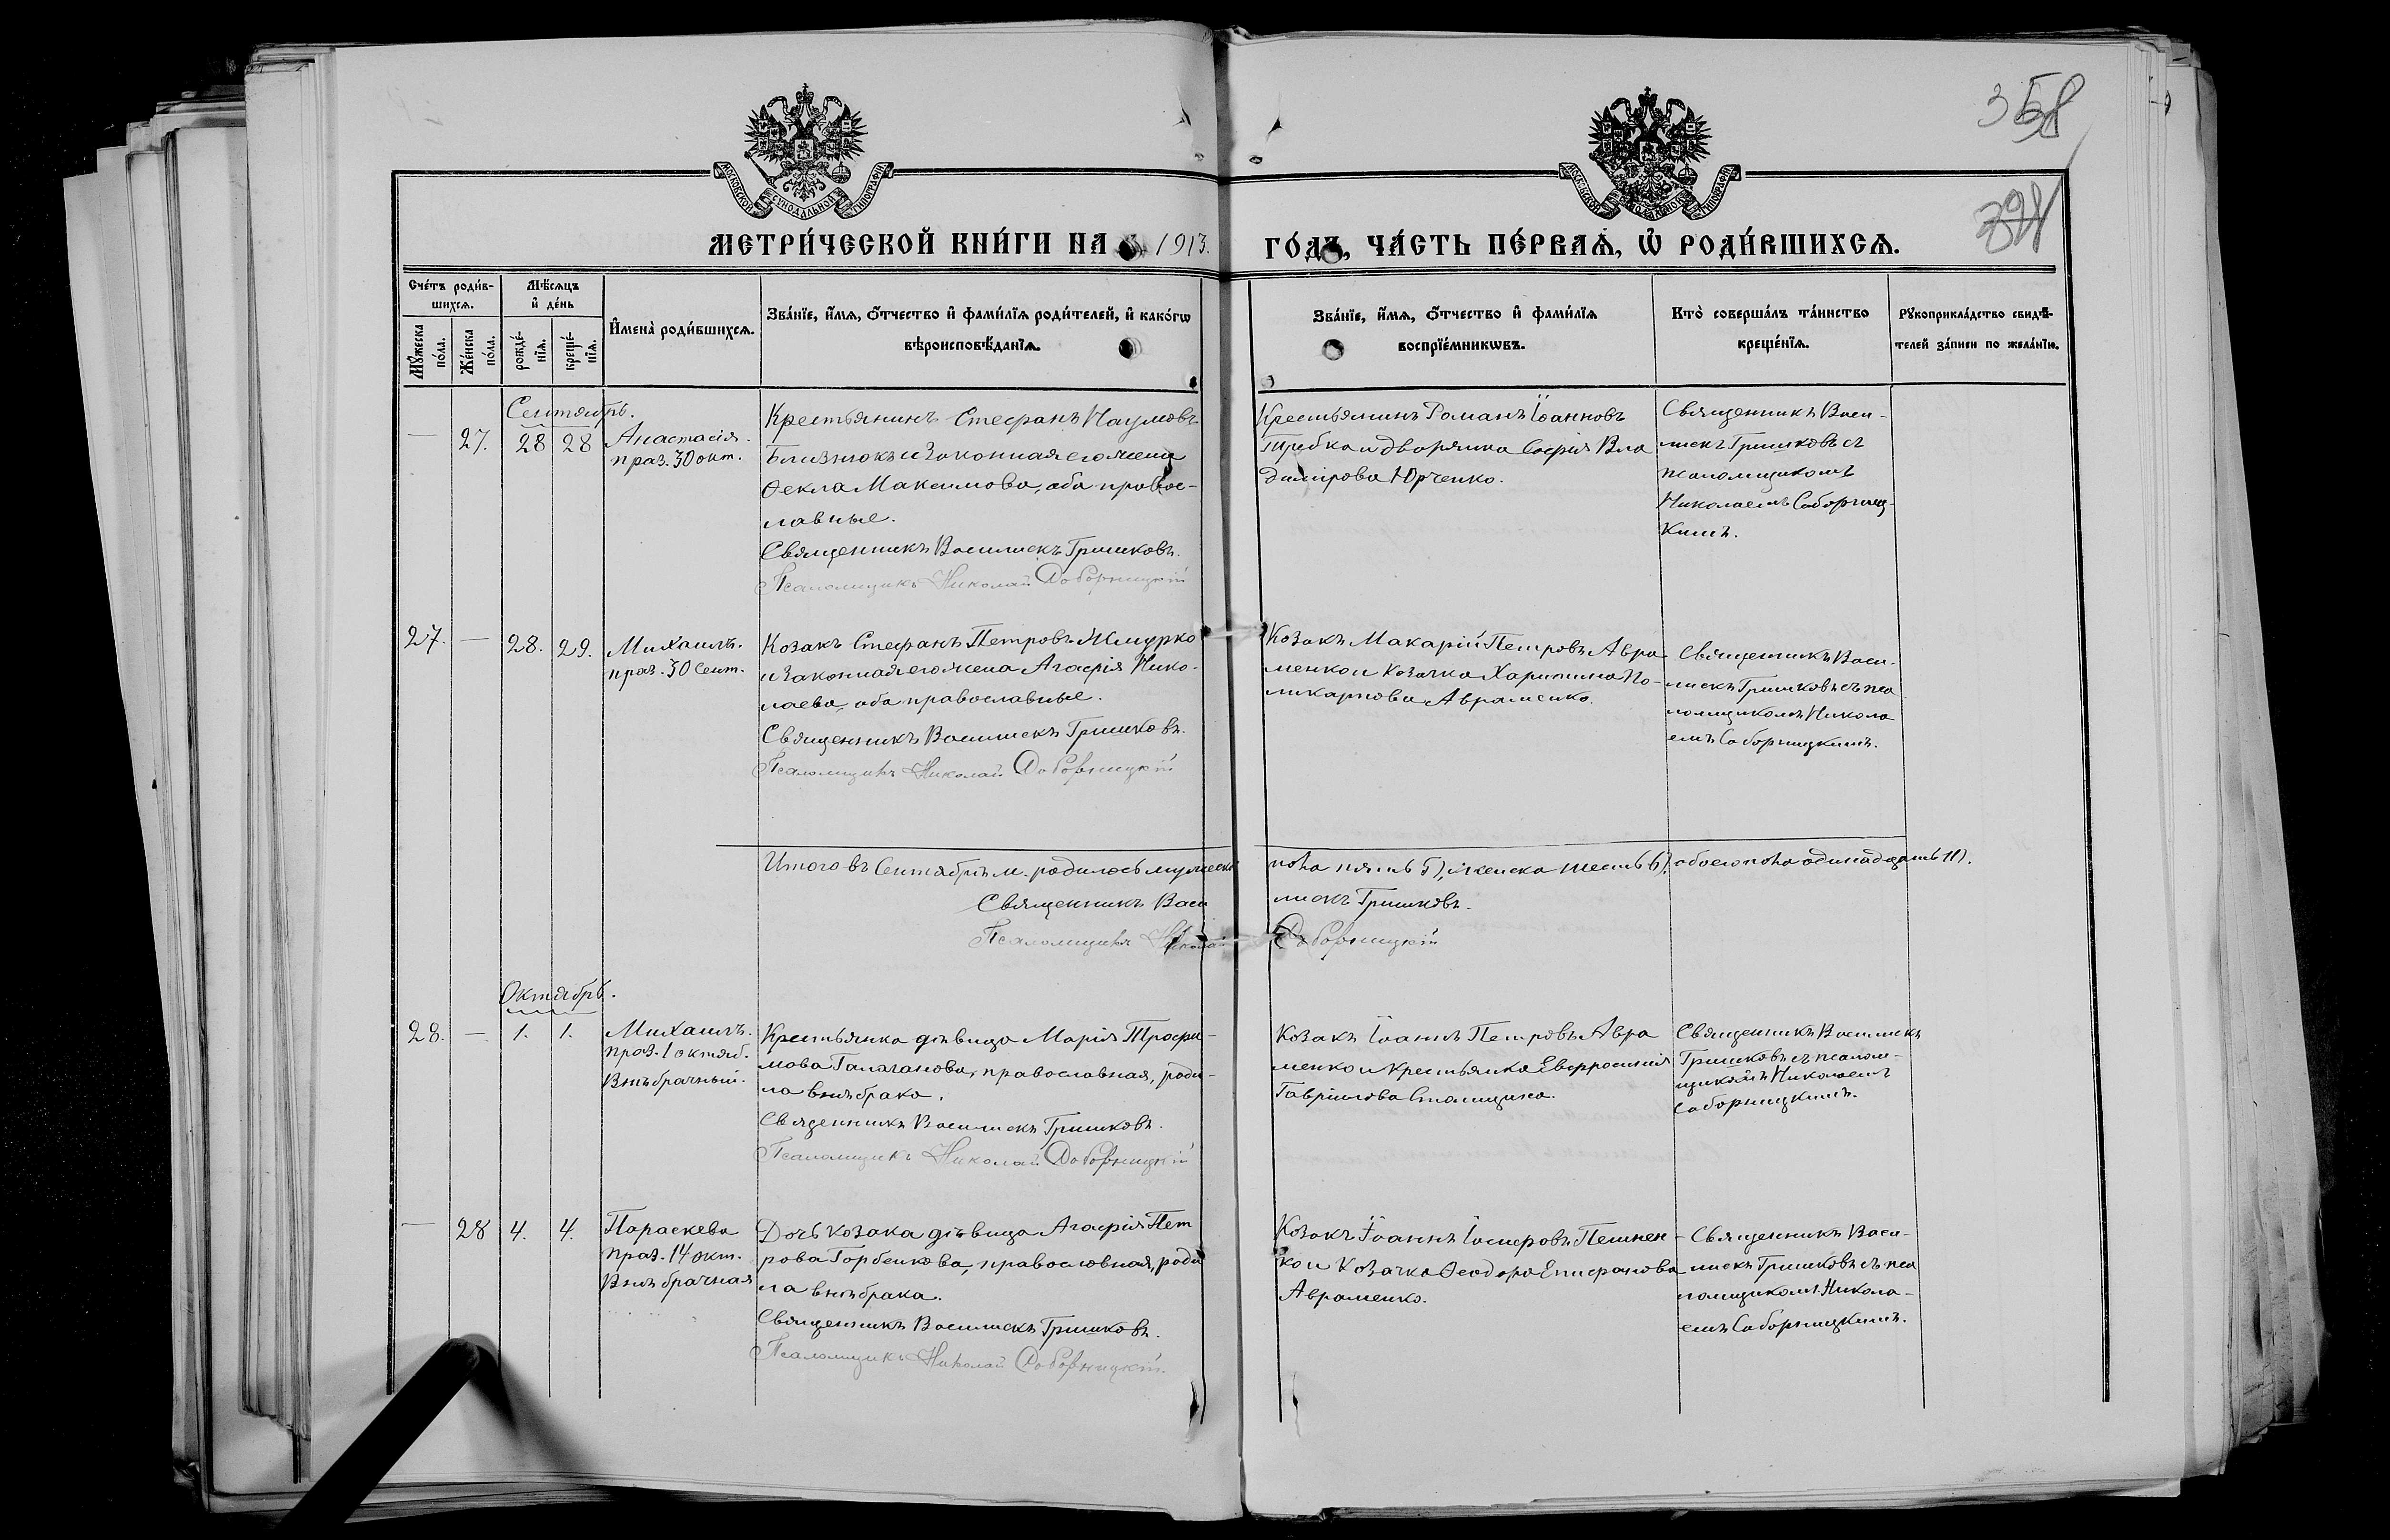 358
394
МОСКОВСКОЙ СѴНОДАЛЬНОЙ ТИПОГРАФІИ
МОСКОВСКОЙ СѴНОДАЛЬНОЙ ТИПОГРАФІИ
МЕТРИ́ЧЕСКОЙ КНИ́ГИ НА 1913.
ГО́ДЪ, ЧА́СТЬ ПЕ́РВАѦ, Ѡ҆ РОДИ́ВШИХСѦ.
Сче́тъ роди́в-
шихсѧ.
Мѣ́сѧцъ
и҆ де́нь
Мꙋ́жеска по́ла.
Же́нска по́ла.
рожде́-нїѧ.
креще́-нїѧ.
И҆мена̀ роди́вшихсѧ.
Зва́нїе, и҆́мѧ, ѻ҆́тчество и҆ фами́лїѧ роди́телей, и҆ како́гѡ
вѣроисповѣ́данїѧ.
Зва́нїе, и҆́мѧ, ѻ҆́тчество и҆ фами́лїѧ
воспрїе́мникѡвъ.
Кто̀ соверша́лъ та́инство
креще́нїѧ.
Рꙋкоприкла́дство свидѣ́-
телей за́писи по жела́нїю.
Сентябрь.
— 27. 28 28
Анастасія.
праз. 30 окт.
Крестьянинъ Стефанъ Наумовъ
Близнюкъ и законная его жена
Ѳекла Максимова, оба правос-
лавные.
Священникъ Василискъ Гришковъ.
Псаломщикъ Николай Соборницкій
Крестьянинъ Романъ Іоанновъ
Требко и дворянка Софія Вла
димірова Юрченко.
Священникъ Васи-
лискъ Гришковъ съ
псаломщикомъ
Николаемъ Соборниц-
кимъ.
27. — 28. 29.
Михаилъ.
праз. 30 Сент.
Козакъ Стефанъ Петровъ Жмурко
и законная его жена Агафія Нико-
лаева, оба православные.
Священникъ Василискъ Гришковъ.
Псаломщикъ Николай Соборницкій
Козакъ Макарій Петровъ Авра
менко и козачка Харитина По-
ликарпова Авраменко.
Священникъ Васи-
лискъ Гришковъ съ пса
ломщикомъ Никола
емъ Соборницкимъ.
Итого въ Сентябрѣ м. родилось мужеска пола пять 5), женска шесть 6), обоего пола одинадцать 11).
Священникъ Василискъ Гришковъ.
Псаломщикъ Николай Соборницкій
Октябрь.
28. — 1. 1.
Михаилъ.
праз. 1 октяб.
Внѣбрачный.
Крестьянка дѣвица Марія Трофи-
мова Галаганова, православная, роди-
ла внѣ брака.
Священникъ Василискъ Гришковъ.
Псаломщикъ Николай Соборницкій
Козакъ Іоаннъ Петровъ Авра
менко и крестьянка Евфросинія
Гавріилова
Священникъ Василискъ
Гришковъ съ псалом-
щикомъ Николаемъ
Соборницкимъ.
— 28 4. 4.
Параскева
праз. 14 окт.
Внѣбрачная
Дочь козака дѣвица Агафія Пет
рова Горбенкова, православная, роди
ла внѣ брака.
Священникъ Василискъ Гришковъ.
Псаломщикъ Николай Соборницкій.
Козакъ Іоаннъ Іосифовъ Пешнен-
ко и козачка Ѳеодора Епифанова
Авраменко.
Священникъ Васи-
лискъ Гришковъ съ пса
ломщикомъ Никола-
емъ Соборницкимъ.